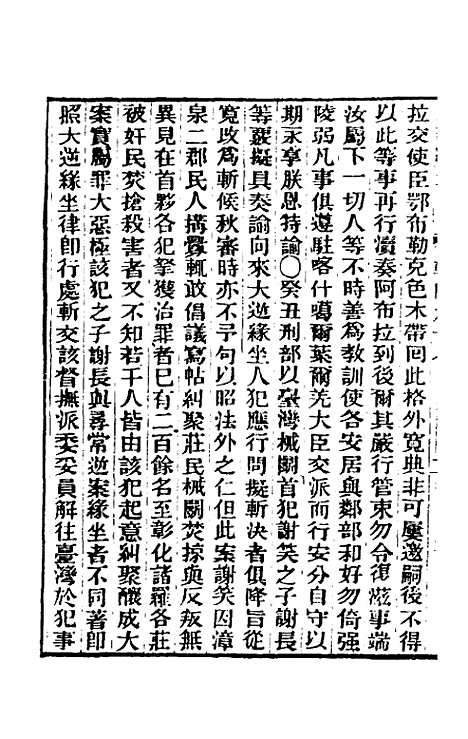 拉交使臣鄂布勒克色木帶回此格外寬典非可屢邀嗣後不得
以此等事再行瀆奏阿布拉到後爾其嚴行管束勿令復滋事端
汝屬下一切人等不時善為教訓使各安居與鄰部和好勿倚強
陵弱凡事俱遵駐喀什噶爾葉爾羌大臣交派而行安分自守以
期永享朕恩特諭〇癸丑刑部以臺灣械鬭首犯謝笑之子謝長
等覈擬具奏諭向來大逆緣坐人犯應行問擬斬決者俱降旨從
寬改為斬候秋審時亦不予句以昭法外之仁但此案謝笑因漳
泉二郡民人搆釁輒敢倡議寫帖糾聚莊民械鬭焚掠與反叛無
異見在首夥各犯拏獲治罪者已有二百餘名至彰化諸羅各莊
被奸民焚搶殺害者又不知若干人皆由該犯起意糾聚釀成大
案實屬罪大惡極該犯之子謝長與尋常逆案緣坐者不同著即
照大逆緣坐律即行處斬交該督撫派委妥員解往臺灣於犯事